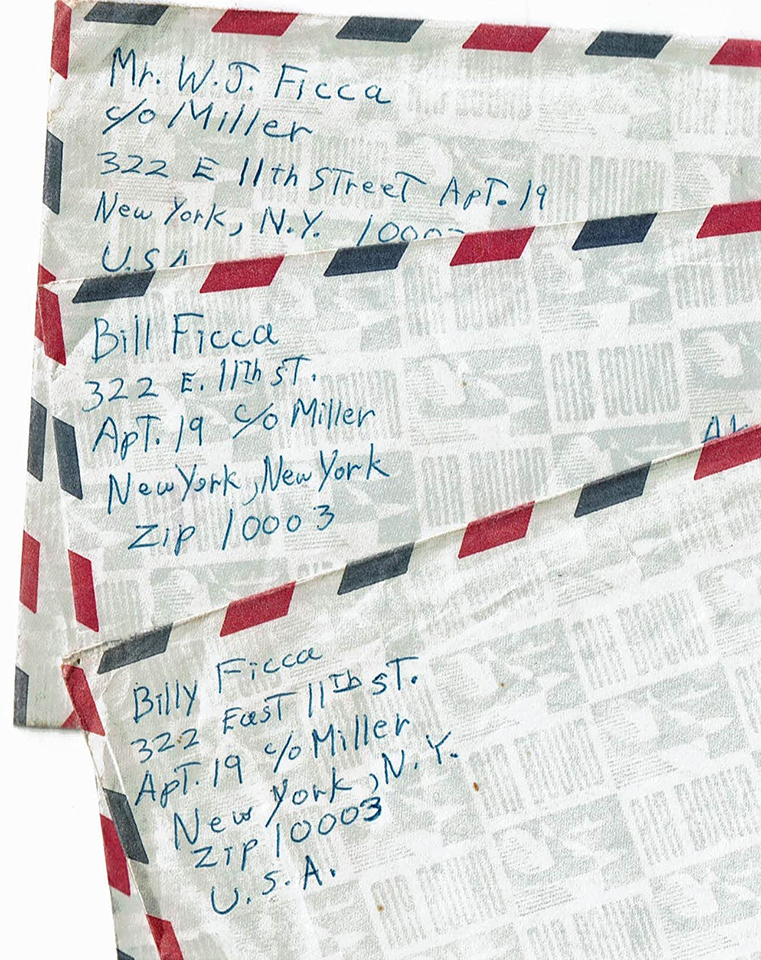 Mr. W.J. Ficca
c/o Miller
322 E 11th Street Apt. 19
New York, N.Y. 10003
U.S.A
Bill Ficca
322 E. 11th st.
Apt. 19 c/o Miller
New York, New York
Zip 10003
Billy Ficca
322 East 11th st.
Apt. 19 c/o Miller
New York, N.Y.
Zip 10003
U.S.A.
AIR BOUND